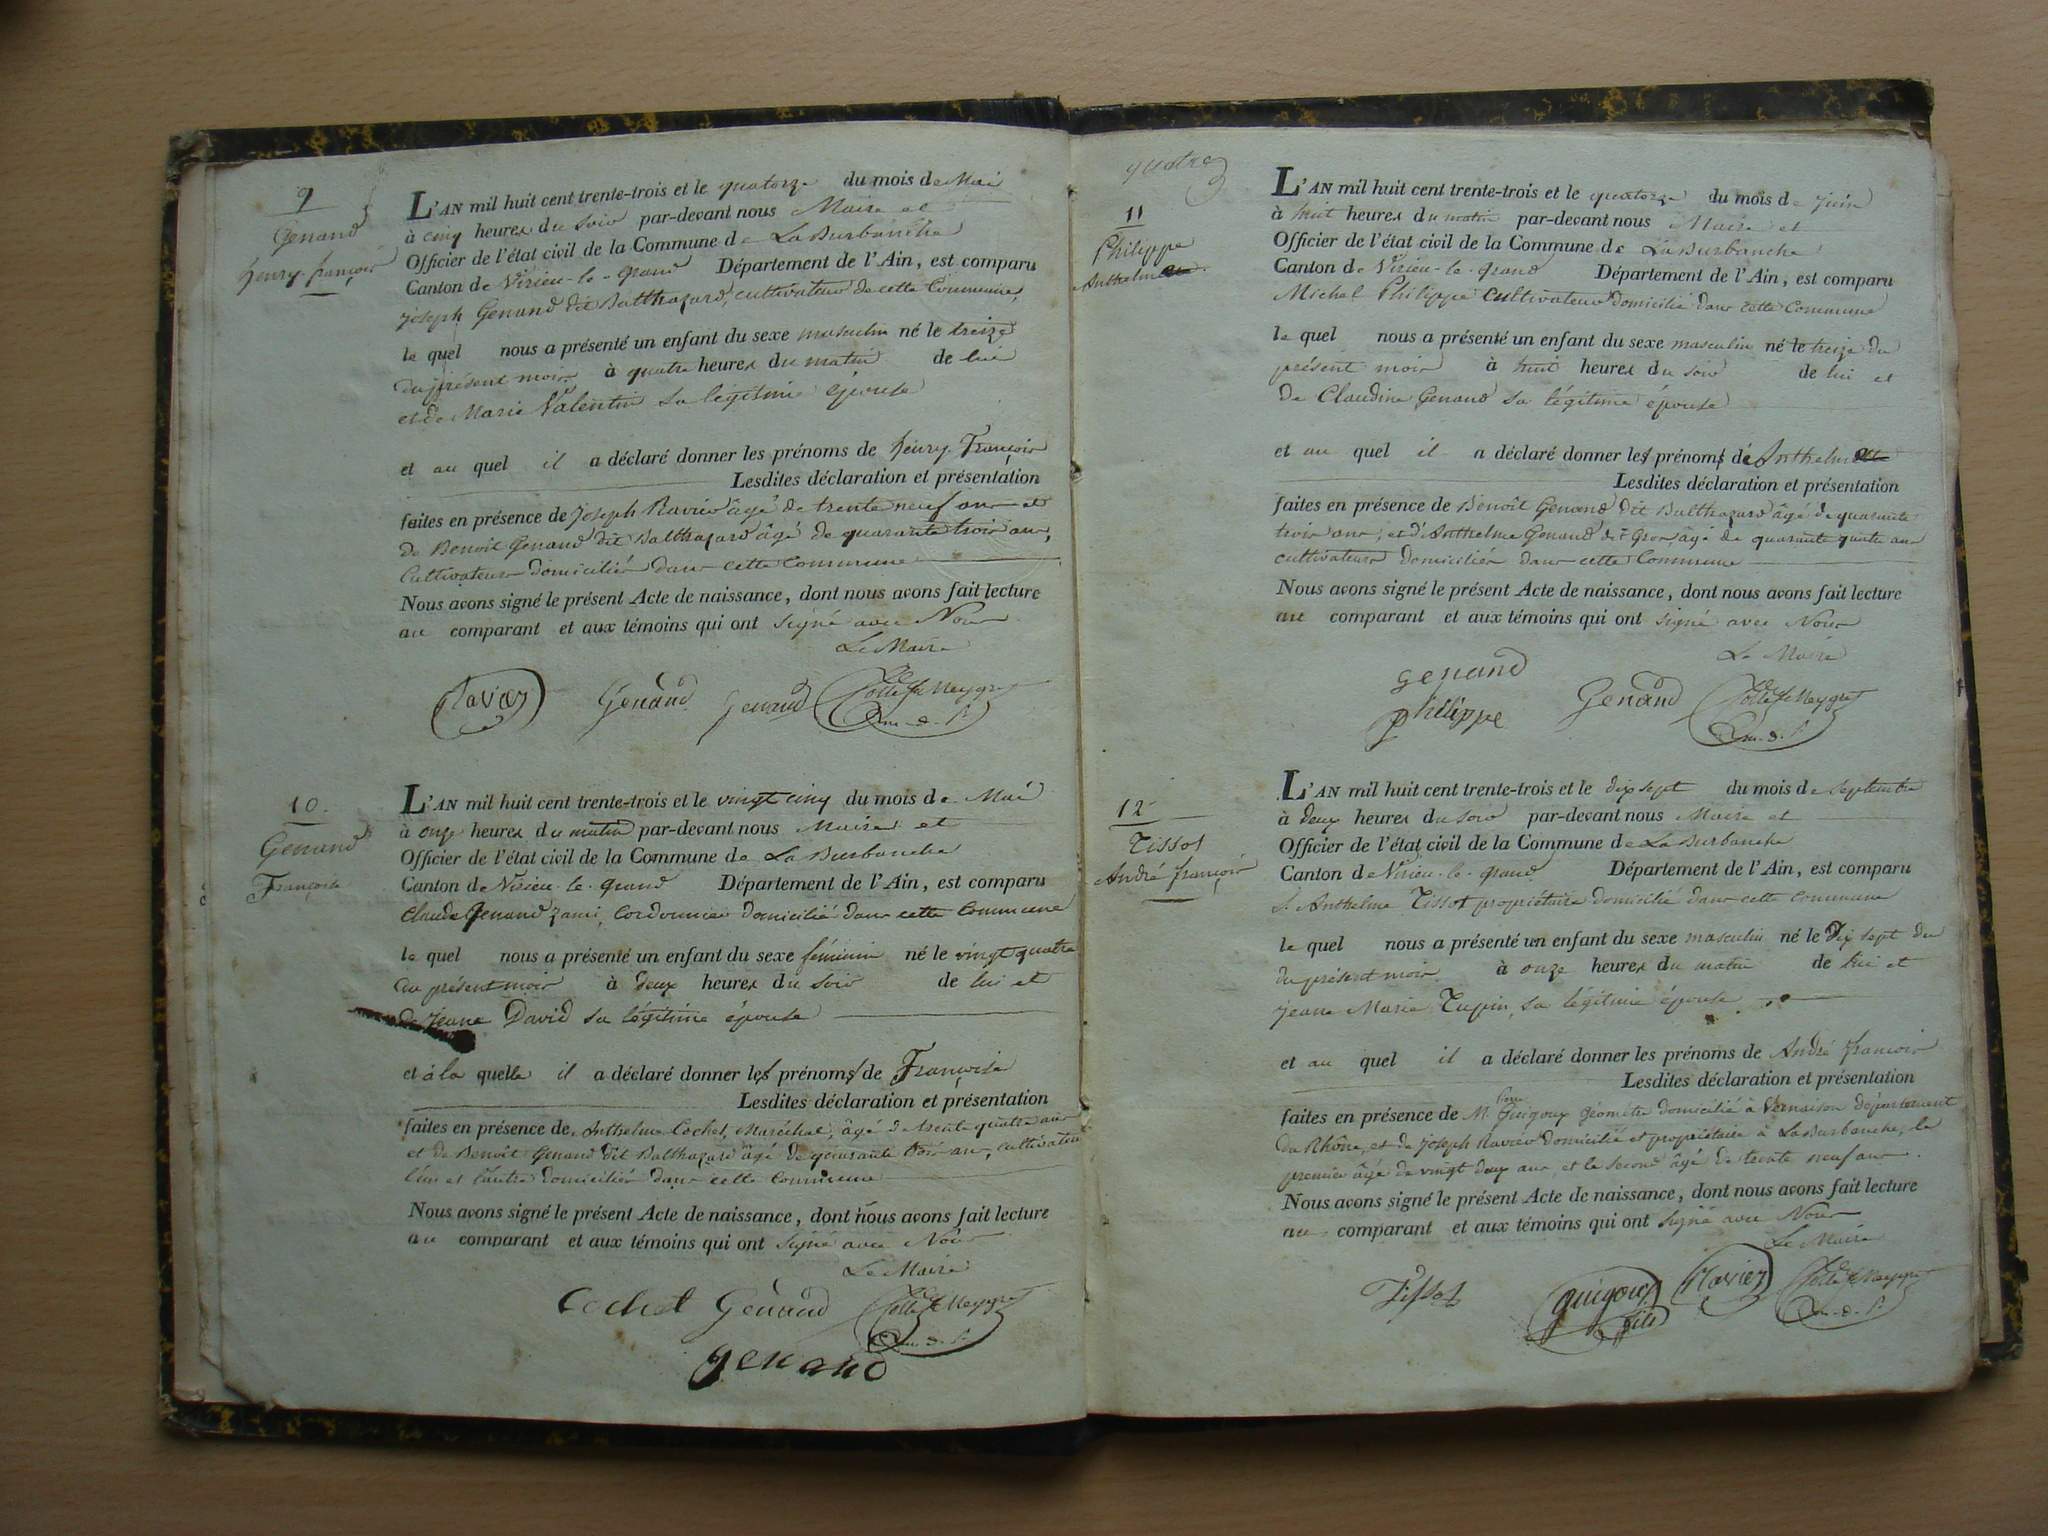 9
Genand
henry françois
L'AN mil huit cent trente-trois et le quatorze du mois de Mai
à cinq heures du soir par-devant nous Maire et
Officier de l'état civil de la Commune de La Burbanche
Canton de Virieu-le-grand Département de l'Ain, est comparu
joseph Genand dit Balthazard, cultivateur de cette Commune,
le quel nous a présenté un enfant du sexe masculin né le treize
du présent mois à quatre heures du matin de lui
et de Marie Valentin sa légitime épouse
et au quel il a déclaré donner les prénoms de henry françois
Lesdites déclaration et présentation
faites en présence de joseph Ravier âgé de trente neuf ans et
de Benoit Genand dit Balthazard âgé de quarante trois ans,
Cultivateurs domiciliés dans cette commune
Nous avons signé le présent Acte de naissance, dont nous avons fait lecture
au comparant et aux témoins qui ont signé avec Nous
Le Maire
Ravier Genand Genand
10
Genand
Françoise
L'AN mil huit cent trente-trois et le vingt cinq du mois de Mai
à onze heures du matin par-devant nous Maire et
Officier de l'état civil de la Commune de La Burbanche
Canton de Virieu-le-grand Département de l'Ain, est comparu
Claude Genand Cordonnier domicilié dans cette Commune
le quel nous a présenté un enfant du sexe féminin né le vingt quatre
du présent mois à deux heures du soir de lui et
de jeane David sa légitime épouse
et à la quelle il a déclaré donner les prénoms de Françoise
Lesdites déclaration et présentation
faites en présence de Anthelme Cochet, Maréchal, âgé de trente quatre ans
et de Benoit Genand dit Balthazard âgé de quarante trois ans, cultivateur
l'un et l'autre domiciliés dans cette Commune
Nous avons signé le présent Acte de naissance, dont nous avons fait lecture
au comparant et aux témoins qui ont signé avec Nous
Le Maire
Cochet Genand
genand
quatre
11
Philippe
Anthelm
L'AN mil huit cent trente-trois et le quatorze du mois de juin
à huit heures du matin par-devant nous Maire et
Officier de l'état civil de la Commune de La Burbanche
Canton de Virieu-le-grand Département de l'Ain, est comparu
Michel Philippe Cultivateur domicilié dans cette Commune
le quel nous a présenté un enfant du sexe masculin né le treize du
présent mois à huit heures du soir de lui et
de Claudine Genand sa légitime épouse
et au quel il a déclaré donner les prénoms de Anthelm
Lesdites déclaration et présentation
faites en présence de Benoît Genand dit Balthazard âgé de quarante
trois ans, et d'Anthelme Genand dit Gros âgé de quarante quatre ans
cultivateurs domiciliés dans cette Commune
Nous avons signé le présent Acte de naissance, dont nous avons fait lecture
au comparant et aux témoins qui ont signé avec Nous
Le Maire
genand
philippe Genand
12
Tissot
André françois
L'AN mil huit cent trente-trois et le dix sept du mois de septembre
à deux heures du soir par-devant nous Maire et
Officier de l'état civil de la Commune de La Burbanche
Canton de Virieu-le-grand Département de l'Ain, est comparu
S. Anthelme Tissot propriétaire domicilié dans cette commune
le quel nous a présenté un enfant du sexe masculin né le Dix sept du
du présent mois à onze heures du matin de lui et
jeane Marie Tupin sa légitime épouse
et au quel il a déclaré donner les prénoms de André françois
Lesdites déclaration et présentation
faites en présence de M. Guigoux géomètre domicilié à Vernaison département
du Rhône, et de joseph Ravier domicilié et propriétaire à La Burbanche, le
premier âgé de vingt deux ans, et le second âgé de trente neuf ans.
Nous avons signé le présent Acte de naissance, dont nous avons fait lecture
au comparant et aux témoins qui ont signé avec Nous
Le Maire
Tissot guigoux fils Ravier